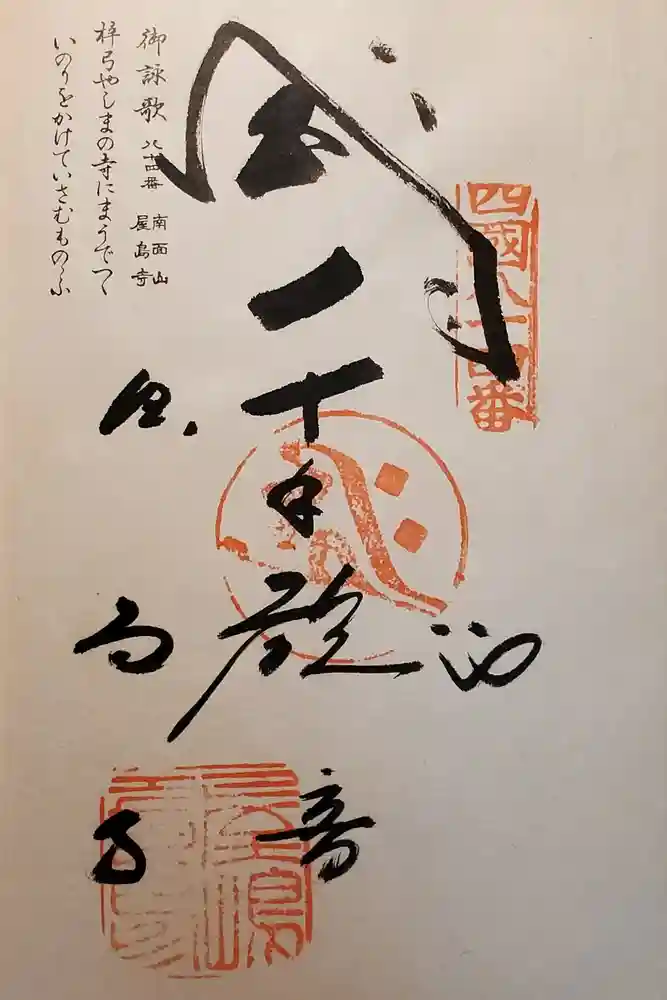 四國八十四番
千手観音
屋島寺
御詠歌 八十四番 南面山
屋島寺
梓弓やしまの寺にまうでつゝ
いのりをかけていさむものゝふ